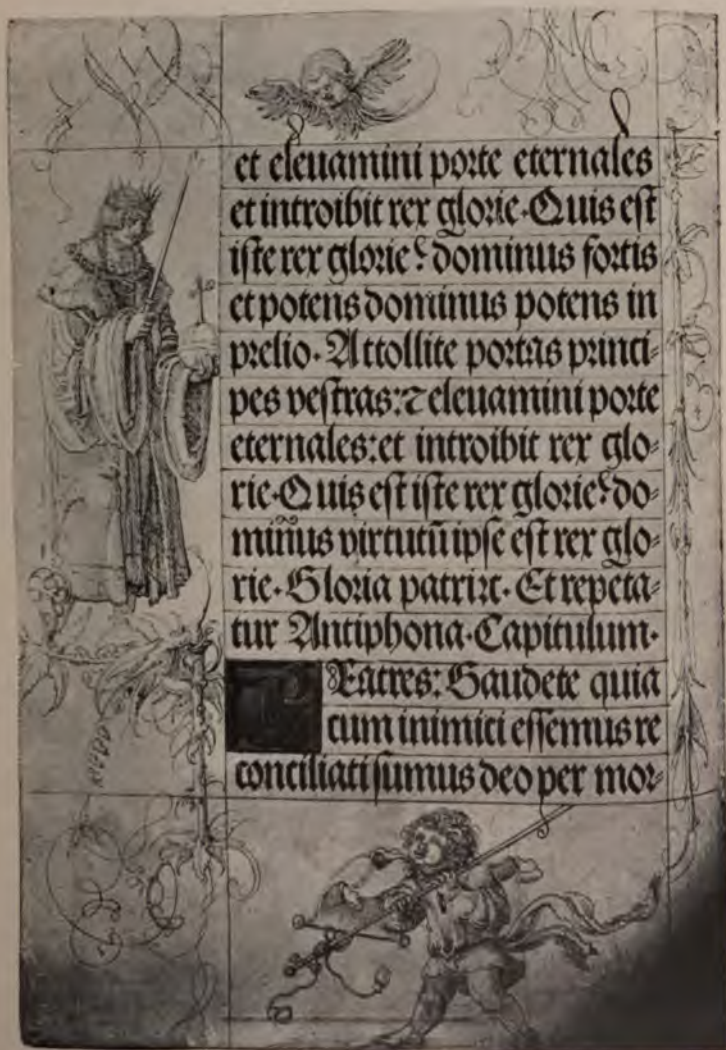 et eleuamini porte eternales
et introibit rex glorie. Quis est
iste rex glorie? dominus fortis
et potens dominus potens in
prelio. Attollite portas princi-
pes vestras: ⁊ eleuamini porte
eternales: et introibit rex glo-
rie. Quis est iste rex glorie? do-
min̄us virtutū ipse est rex glo-
rie. Gloria patri ⁊c. Et repeta-
tur Antiphona. Capitulum.
Fratres: Gaudete quia
cum inimici essemus re
conciliati sumus deo per mor-